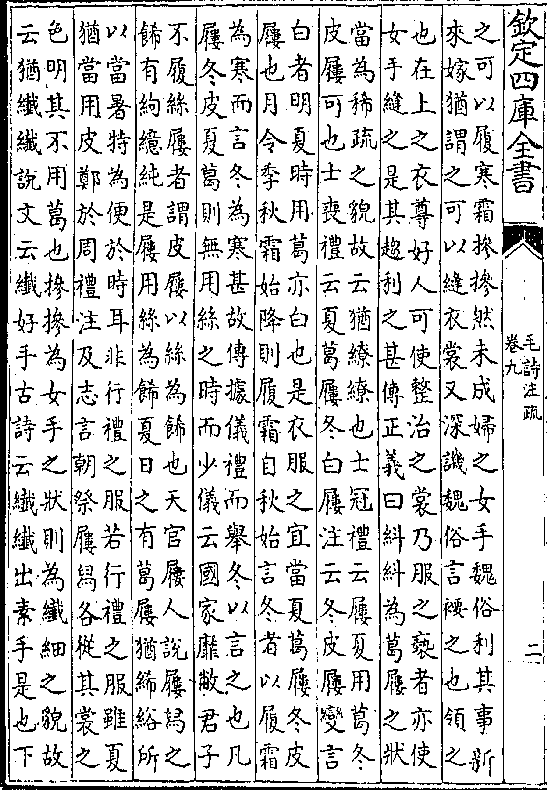 欽定四庫全書
毛詩注疏
卷九
二
之可以履寒霜摻摻然未成婦之女手魏俗利其事新
來嫁猶謂之可以縫衣裳又深譏魏俗言䙅之也領之
也在上之衣尊好人可使整治之裳乃服之䙝者亦使
女手縫之是其趨利之甚傳正義曰糾糾為葛屨之狀
當為稀疏之貌故云猶繚繚也士冠禮云屨夏用葛冬
皮屨可也士喪禮云夏葛屨冬白屨注云冬皮屨變言
白者明夏時用葛亦白也是衣服之宜當夏葛屨冬皮
屨也月令季秋霜始降則履霜自秋始言冬者以履霜
為寒而言冬為寒甚故傳據儀禮而舉冬以言之也凡
屨冬皮夏葛則無用絲之時而少儀云國家靡敝君子
不履絲屨者謂皮屨以絲為飾也天官屨人說屨舄之
飾有絇繶純是屨用絲為飾夏日之有葛屨猶絺綌所
以當暑特為便於時耳非行禮之服若行禮之服雖夏
猶當用皮鄭於周禮注及志言朝祭屨舄各從其裳之
色明其不用葛也摻摻為女手之狀則為纖細之貌故
云猶纖纖說文云纖好手古詩云纖纖出素手是也下